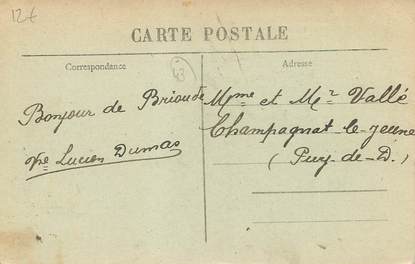 12€
CARTE POSTALE
Correspondance
43
Adresse
Bonjour de Brioude
Vve Lucien Dumas
Mme et Mr Vallé
Champagnat-le-jeune
(Puy-de-D.)